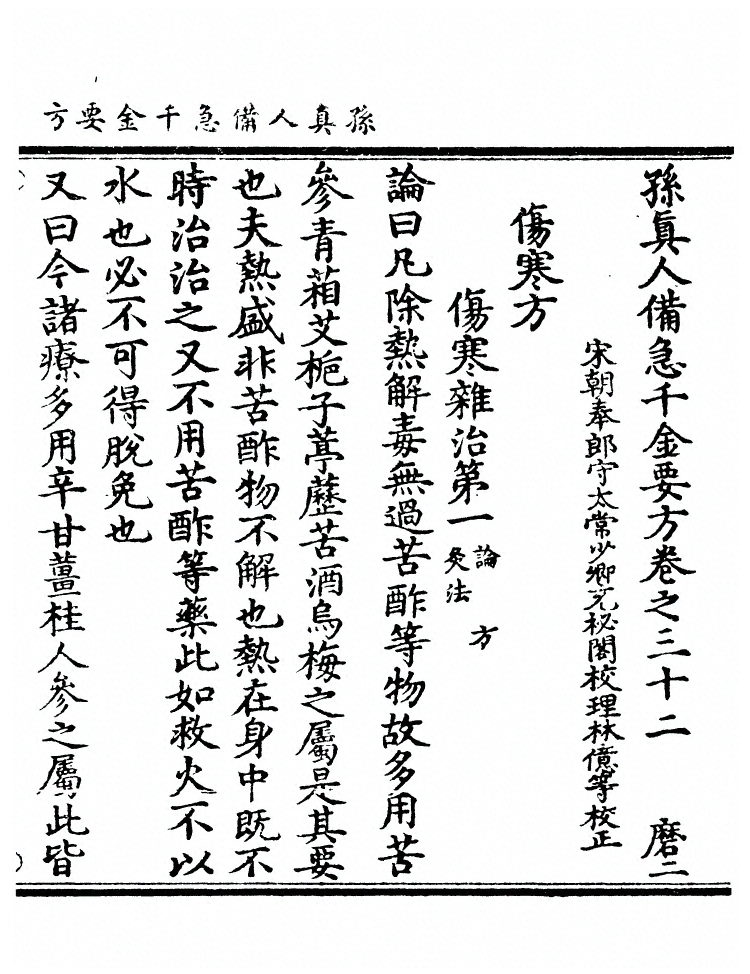 孫真人備急千金要方
孫真人備急千金要方卷之三十二 磨二
宋朝奉郎守太常少卿充秘閣校理林億等校正
傷寒方
傷寒雜治第一 論 方 灸法
論曰凡除熱解毒無過苦酢等物故多用苦
參青葙艾梔子葶藶苦酒烏梅之屬是其要
也夫熱盛非苦酢物不解也熱在身中既不
時治治之又不用苦酢等藥此如救火不以
水也必不可得脫免也
又曰今諸療多用辛甘薑桂人參之屬此皆